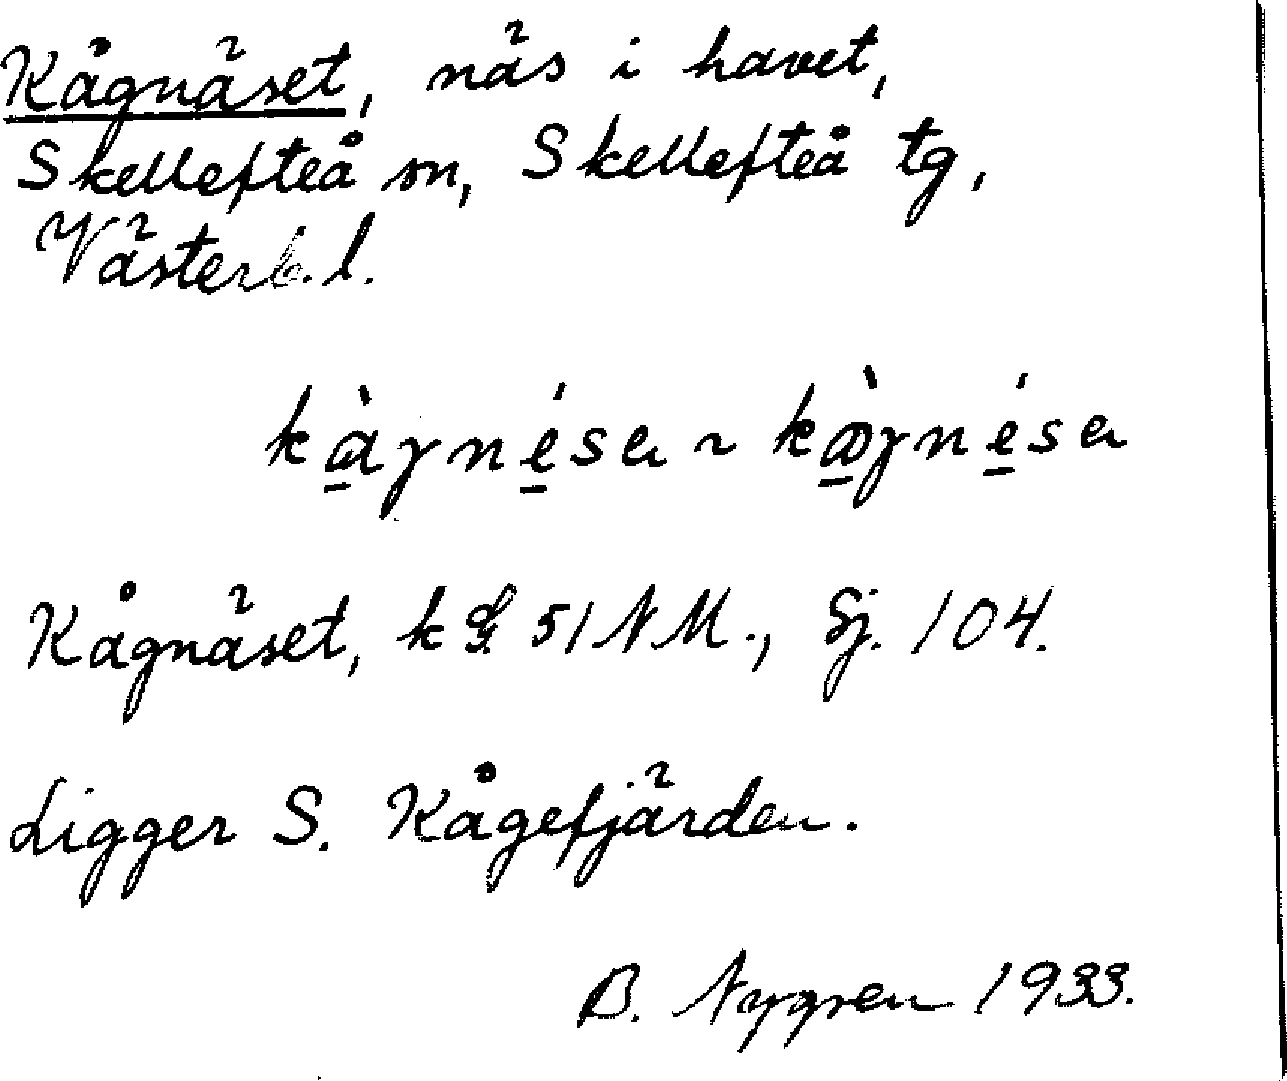 Kågnäset, näs i havet,
Skellefteå sn, Skellefteå tg,
Västerb. l.
Kågnäset, 51 NM., Sj. 104.
Ligger S. Kågefjärden.
B. Nygren 1933.